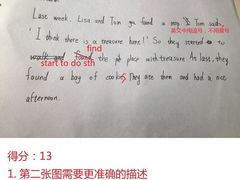 Last week, Lisa and Tom found a map. Tom said,
英文中用逗号，不用顿号
"I think there is a treasure here!" So they started to
walk and found the place with treasure. At last, they
find
start to do sth
found a bay of cookies. They ate them and had a nice
afternoon.
得分：13
1. 第二张图需要更准确的描述